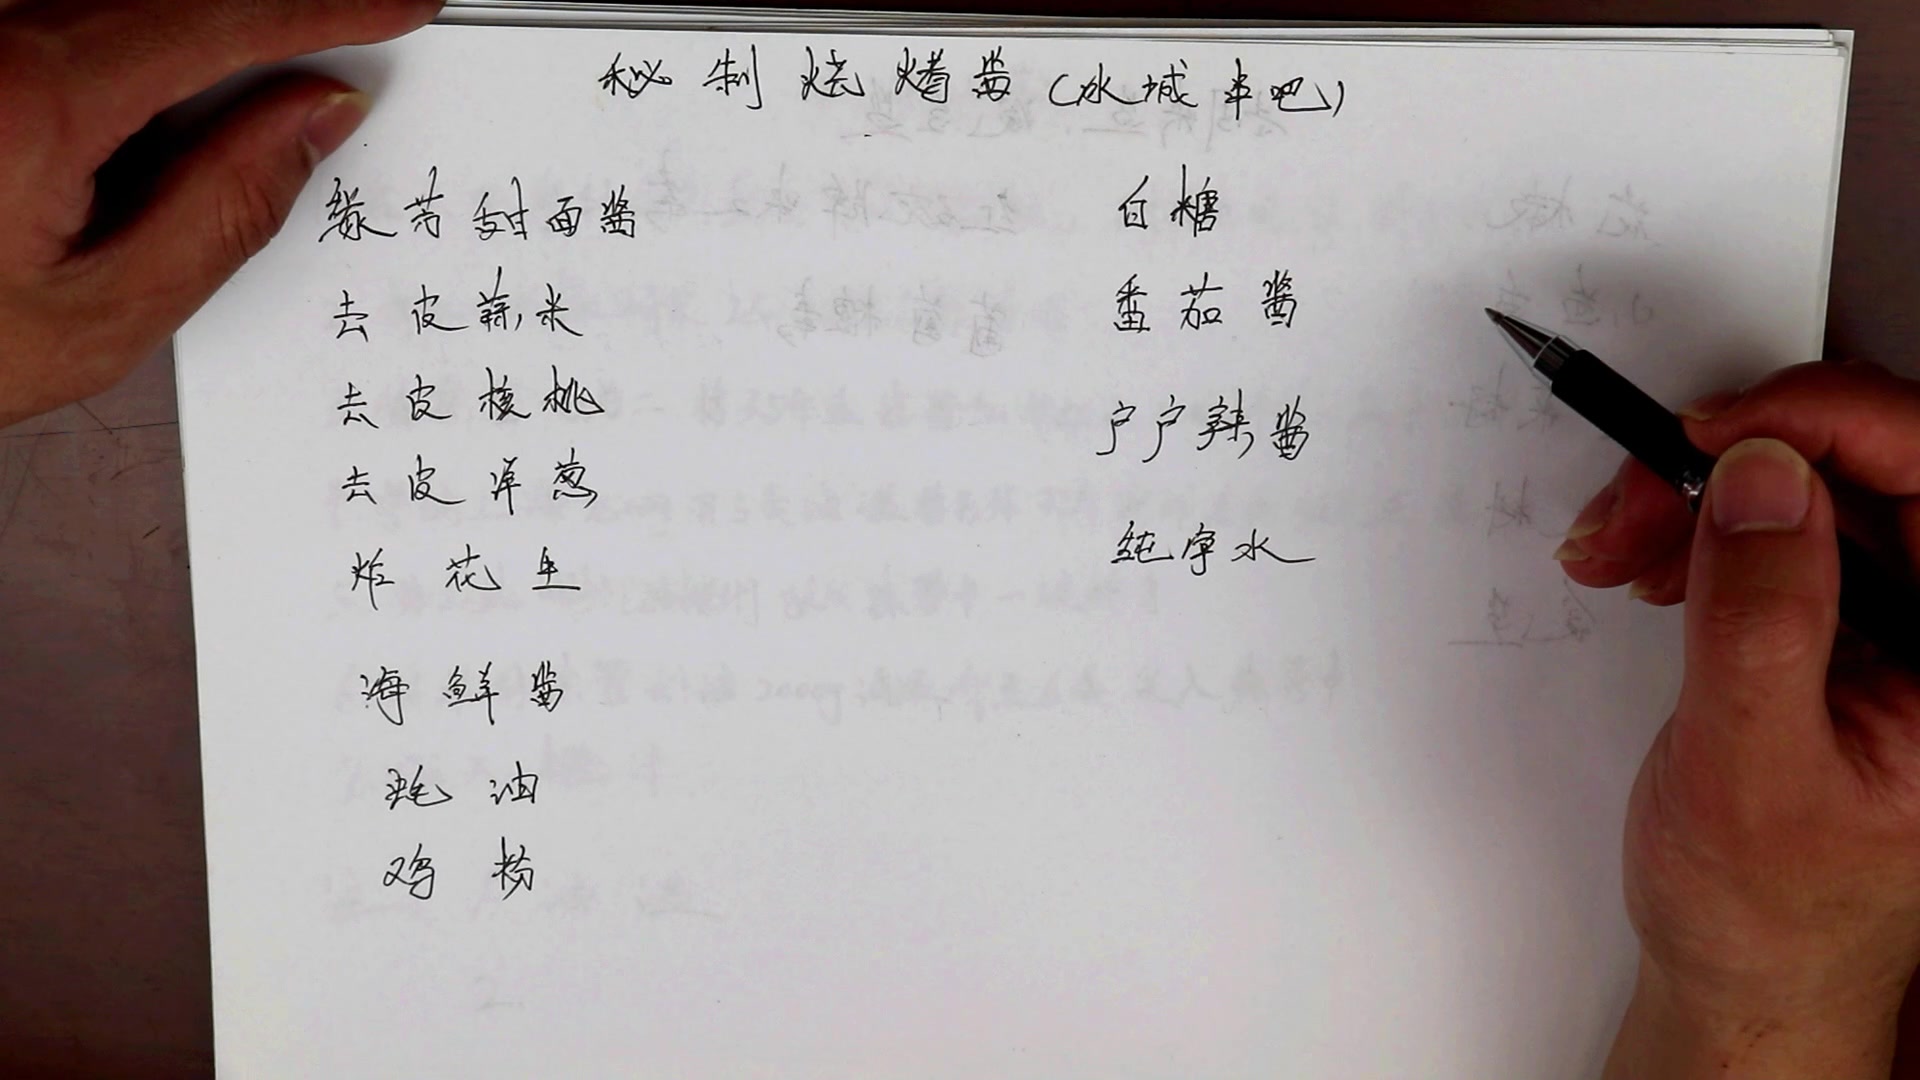 秘制烧烤酱(冰城串吧)
缘芳甜面酱
去皮蒜米
去皮核桃
去皮洋葱
炸花生
海鲜酱
耗油
鸡粉
白糖
番茄酱
户户辣酱
纯净水